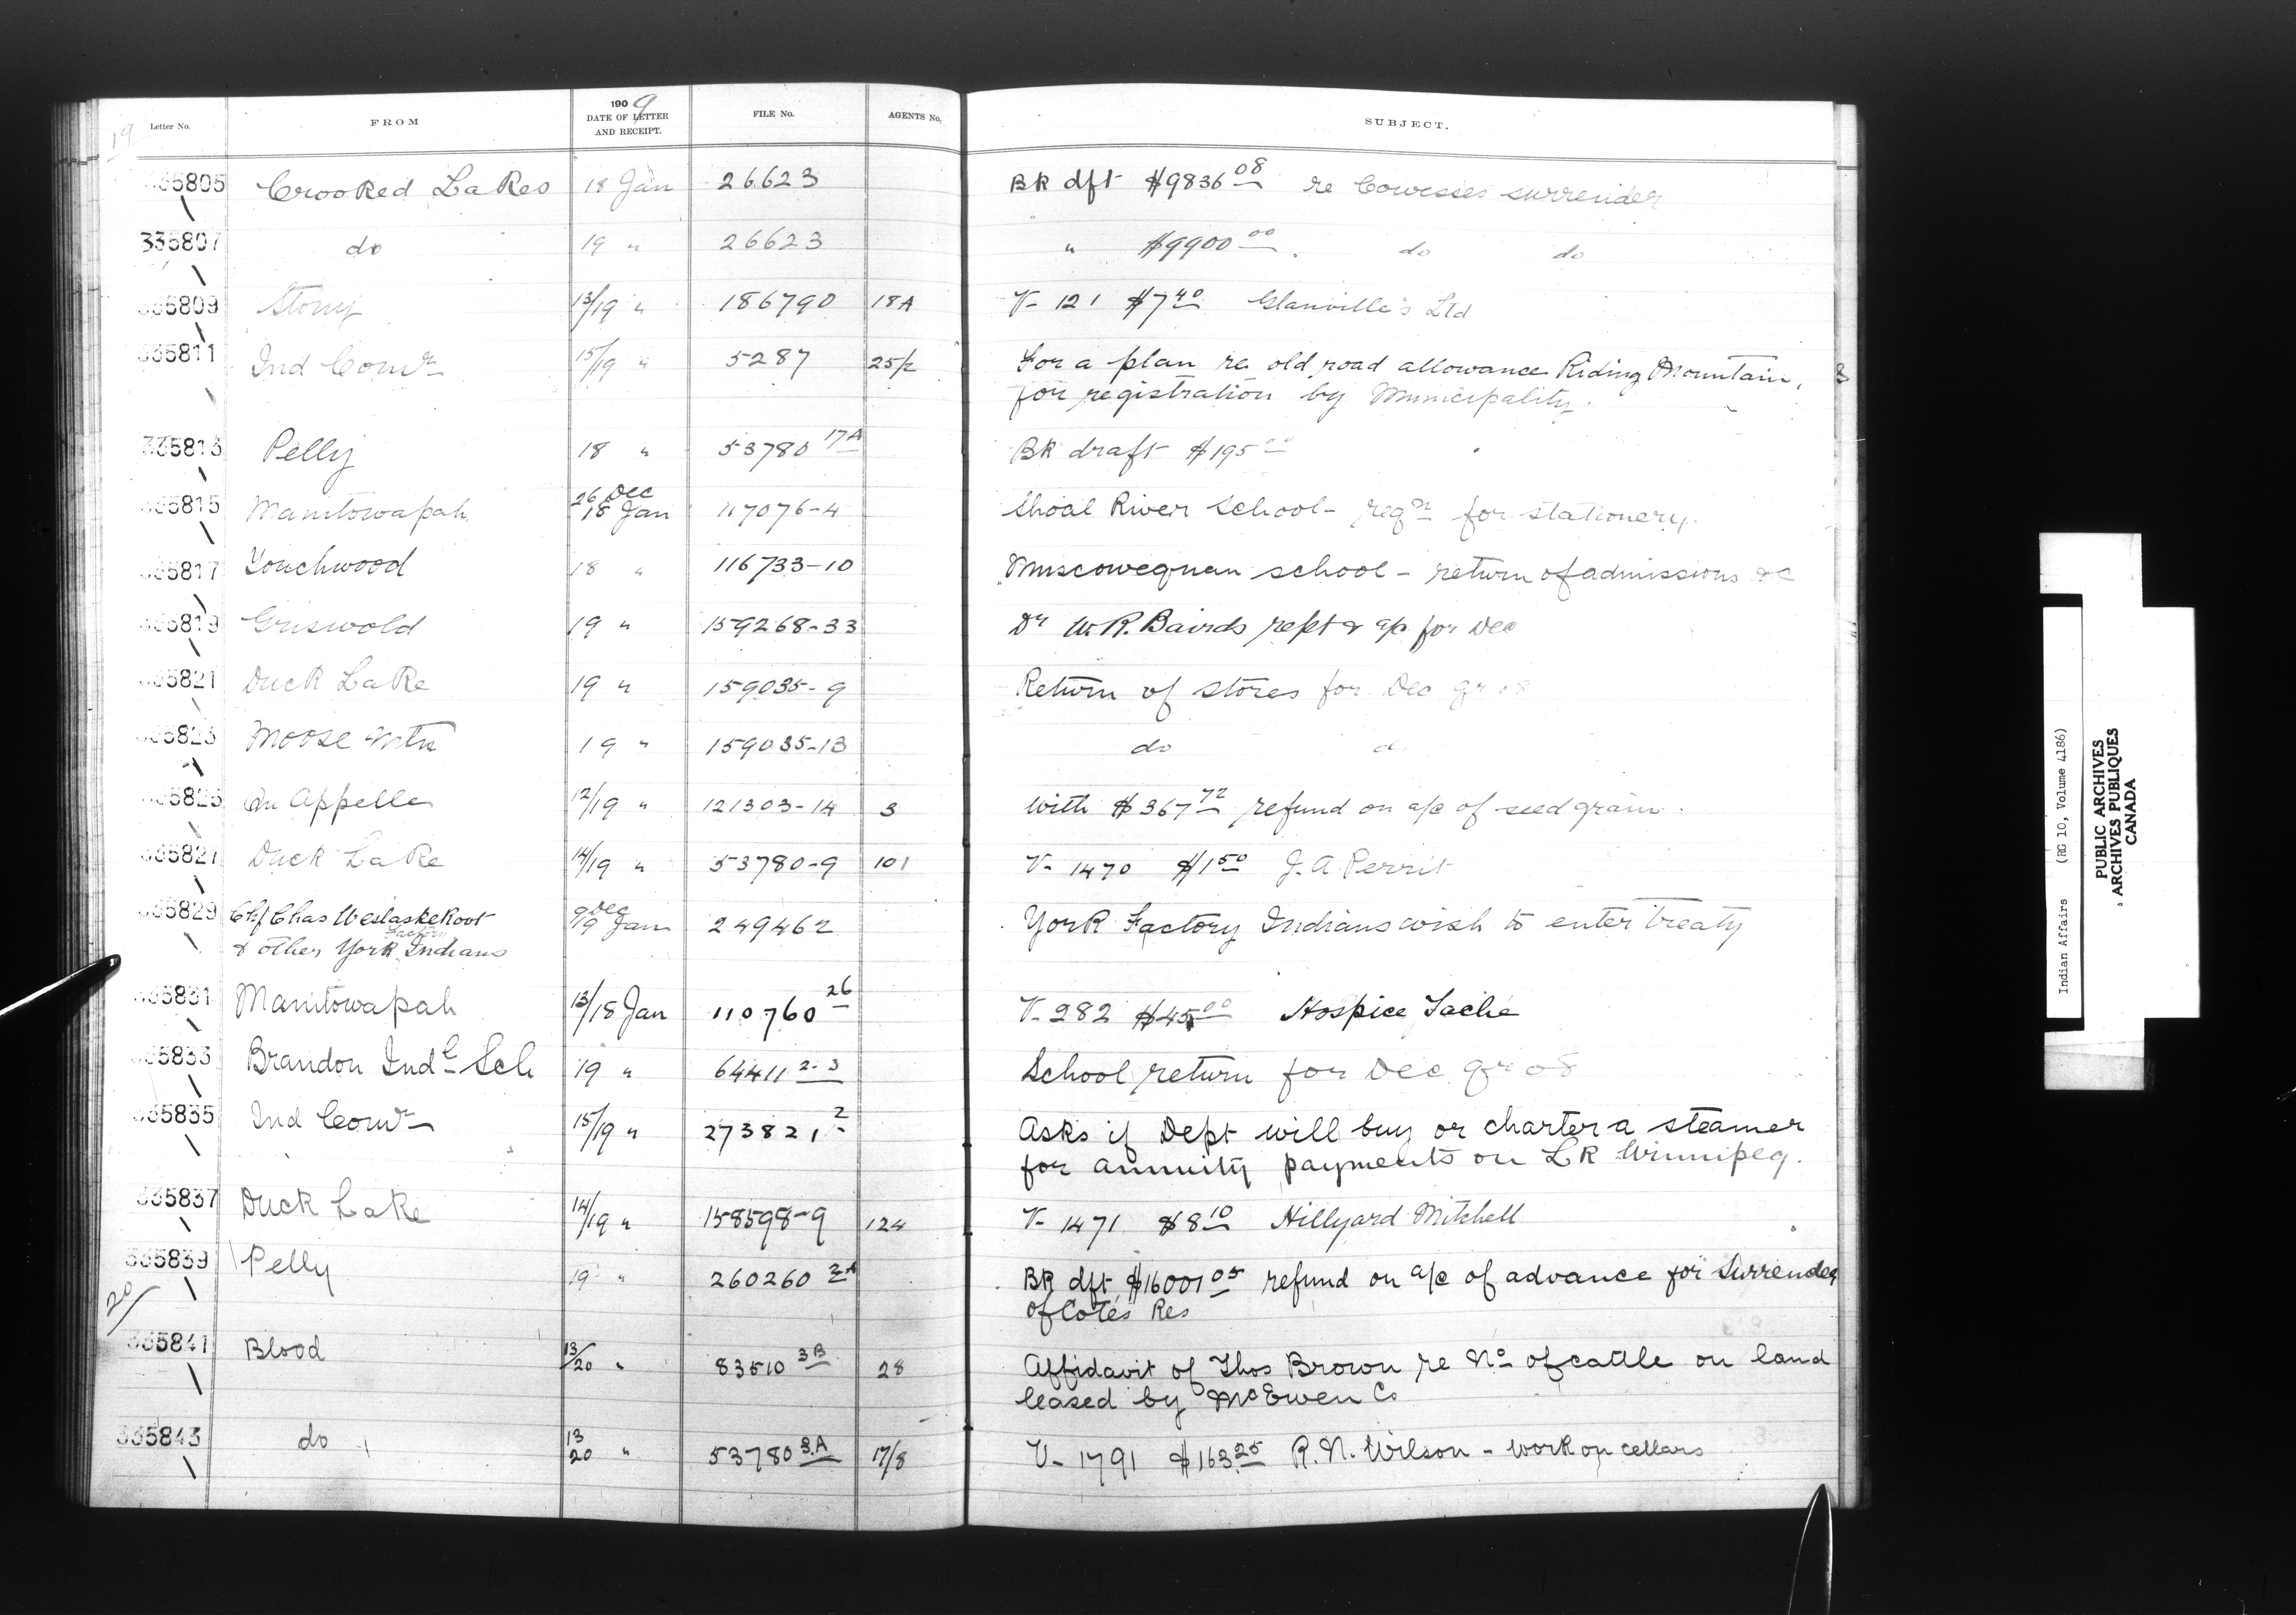 19
Letter No. FROM 1909 DATE OF LETTER AND RECEIPT. FILE No. AGENTS No. SUBJECT.
335805 Crooked Lakes 18 Jan 26623 Bk dft $9836 08 re Cowesses surrender
335807 do 19 " 26623 " $9900 00 do do
335809 Stony 13/19 " 186790 18A V- 121 $7 40 Glanville's Ltd
335811 Ind Comr 15/19 " 5287 25/2 For a plan re old road allowance Riding Mountain,
for registration by Municipality.
335813 Pelly 18 " 53780 17A Bk draft $195 00
335815 Manitowapah 26 Dec 18 Jan 117076-4 Shoal River School- reqn for stationery.
335817 Touchwood 18 " 116733-10 Muscowequan school - return of admissions &c
335819 Griswold 19 " 159268-33 Dr W.R. Bairds rept & a/c for Dec
335821 Duck Lake 19 " 159035-9 Return of stores for Dec qr 08
335823 Moose Mtn 19 " 159035-13 do do
335825 Qu Appelle 12/19 " 121303-14 3 With $367 72 refund on a/c of seed grain.
335827 Duck Lake 14/19 " 53780-9 101 V- 1470 $1 50 J. A Perrit
335829 Chf Chas Weslaskekoot 9 Dec 19 Jan 249462 York Factory Indians wish to enter treaty
& other York Factory Indians
335831 Manitowapah 13/18 Jan 110760 26 V- 282 $45 00 Hospice Taché
335833 Brandon Indl Sch 19 " 64411 2-3 School return for Dec qr 08
335835 Ind Comr 15/19 " 273821 2 Asks if Dept will buy or charter a steamer
for annuity payments on Lk Winnipeg.
335837 Duck Lake 14/19 " 158598-9 124 V- 1471 $8 10 Hillyard Mitchell
335839 Pelly 19 " 260260 2A Bk dft $16001 05 refund on a/c of advance for Surrender
of Cotés Res
20
335841 Blood 13/20 " 83510 3B 28 Affidavit of Thos Brown re No of cattle on land
leased by McEwen Co
335843 do 13 20 " 53780 3A 17/8 V- 1791 $163.25 R. N. Wilson - work on cellars
Indian Affairs (RG 10, Volume 4186)
PUBLIC ARCHIVES
ARCHIVES PUBLIQUES
CANADA